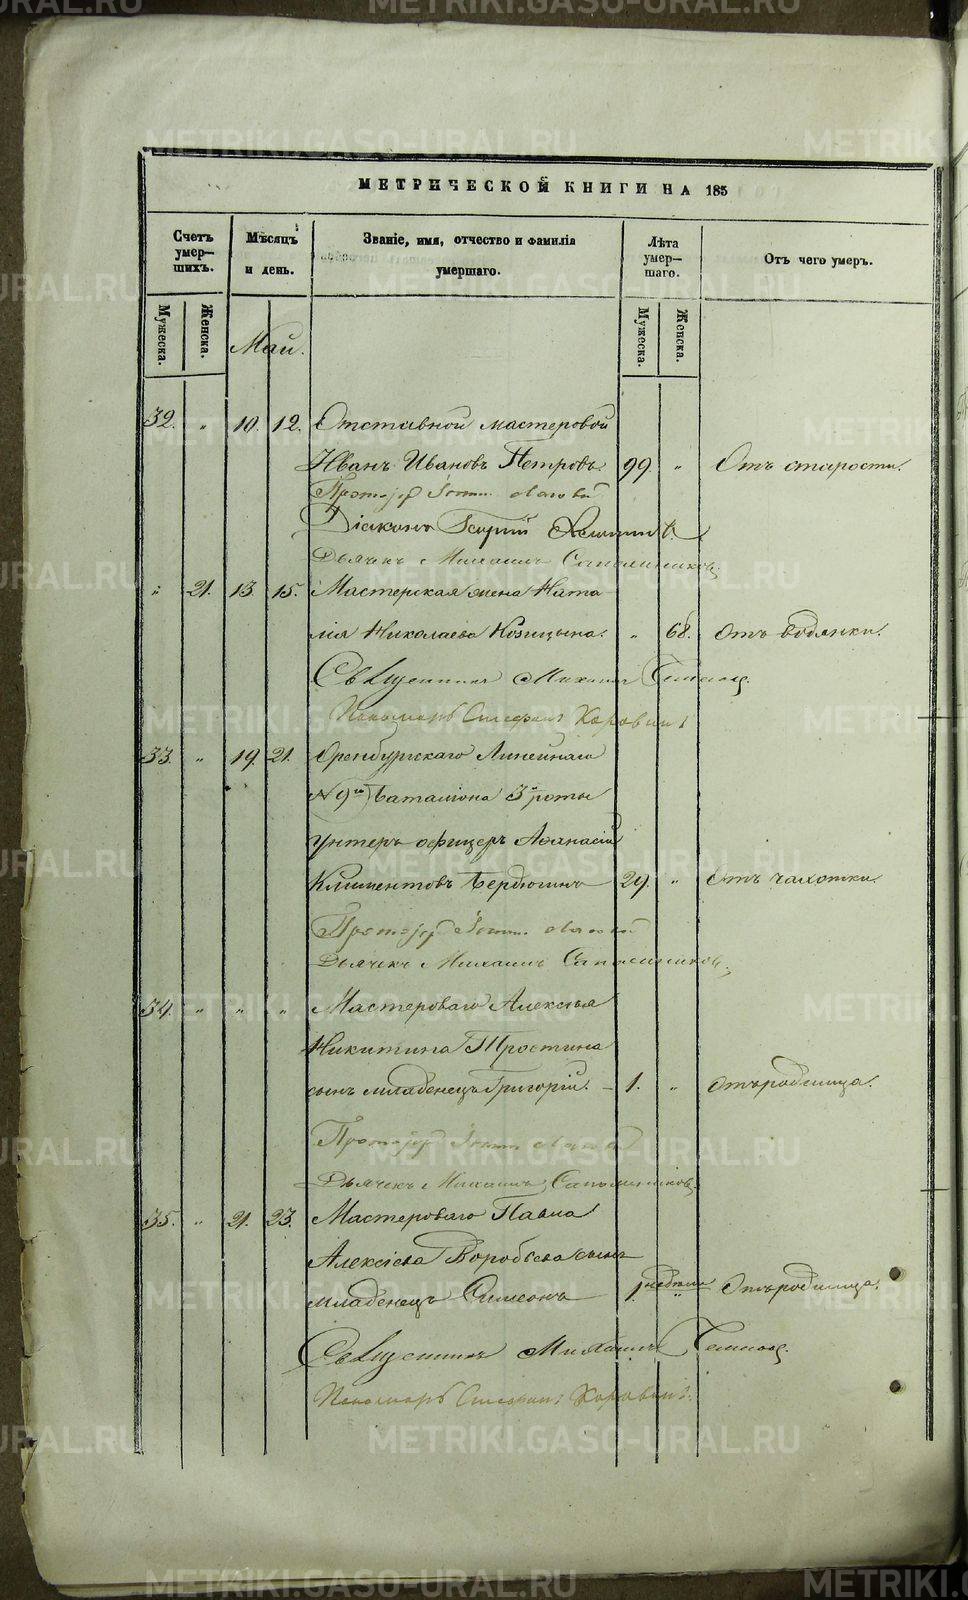 МЕТРИЧЕСКОЙ КНИГИ НА 185
Счетъ умер-шихъ.
Мѣсяцъ и день.
Званіе, имя, отчество и фамилія умершаго.
Лѣта умер-шаго.
Отъ чего умеръ.
Мужеска.
Женска.
Мужеска.
Женска.
Май.
32. " 10. 12. Отставной мастеровой
Иванъ Ивановъ Петровъ 99 " Отъ старости.
Протоіер
Діаконъ Георгій
Дьячекъ Михаилъ Сапожников
" 21. 13 15. Мастерская жена Ната
лія Николаева Козицына. " 68. Отъ водянки.
Священникъ Михаилъ
Пономарь Стефанъ Коровинъ
33. " 19. 21. Оренбургскаго Линейнаго
№ 9го Баталіона 3й роты
Унтеръ офицеръ Аѳанасій
Климентовъ Бердюгинъ 29. " Отъ чахотки.
Протоіер
Дьячекъ Михаилъ Сапожников
34. " " " Мастероваго Алексѣя
Никитина Простина
сынъ младенецъ Григорій. 1. " Отъ родимца.
Протоіер
Дьячекъ Михаилъ Сапожников
35. " 21. 23. Мастероваго Павла
Алексіева Воробьева сынъ
младенецъ Симеонъ 1 недѣли " Отъ родимца.
Священникъ Михаилъ
Пономарь Стефанъ Коровинъ.
METRIKI.GASO-URAL.RU